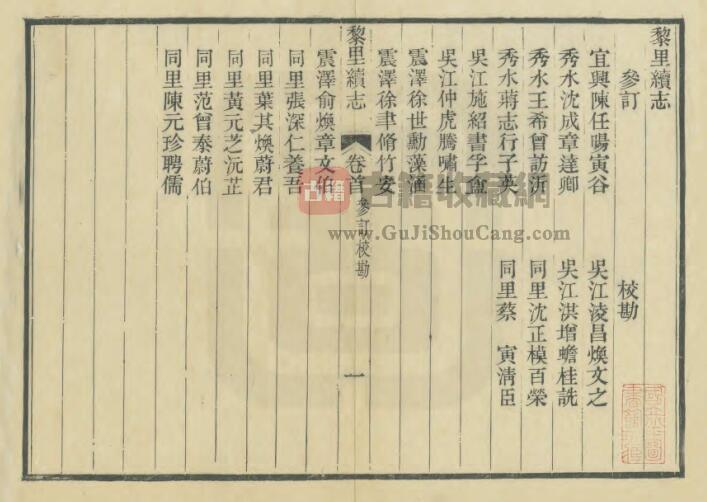 黎里續志
參訂 校勘
宜興陳任暘寅谷 吳江淩昌煥文之
秀水沈成章達卿 吳江洪增蟾桂詵
秀水王希曾訪沂 同里沈正模百榮
秀水蔣志行子英 同里蔡 寅清臣
吳江施紹書孚盦
吳江仲虎騰嘯生
震澤徐世勳藻涵
震澤徐聿脩竹安
黎里續志 卷首 參訂校勘 一
震澤俞煥章文伯
同里張深仁養吾
同里葉其煥蔚君
同里黃元芝沅芷
同里范曾泰蔚伯
同里陳元珍聘儒
古籍 古籍收藏網
www.GuJiShouCang.com